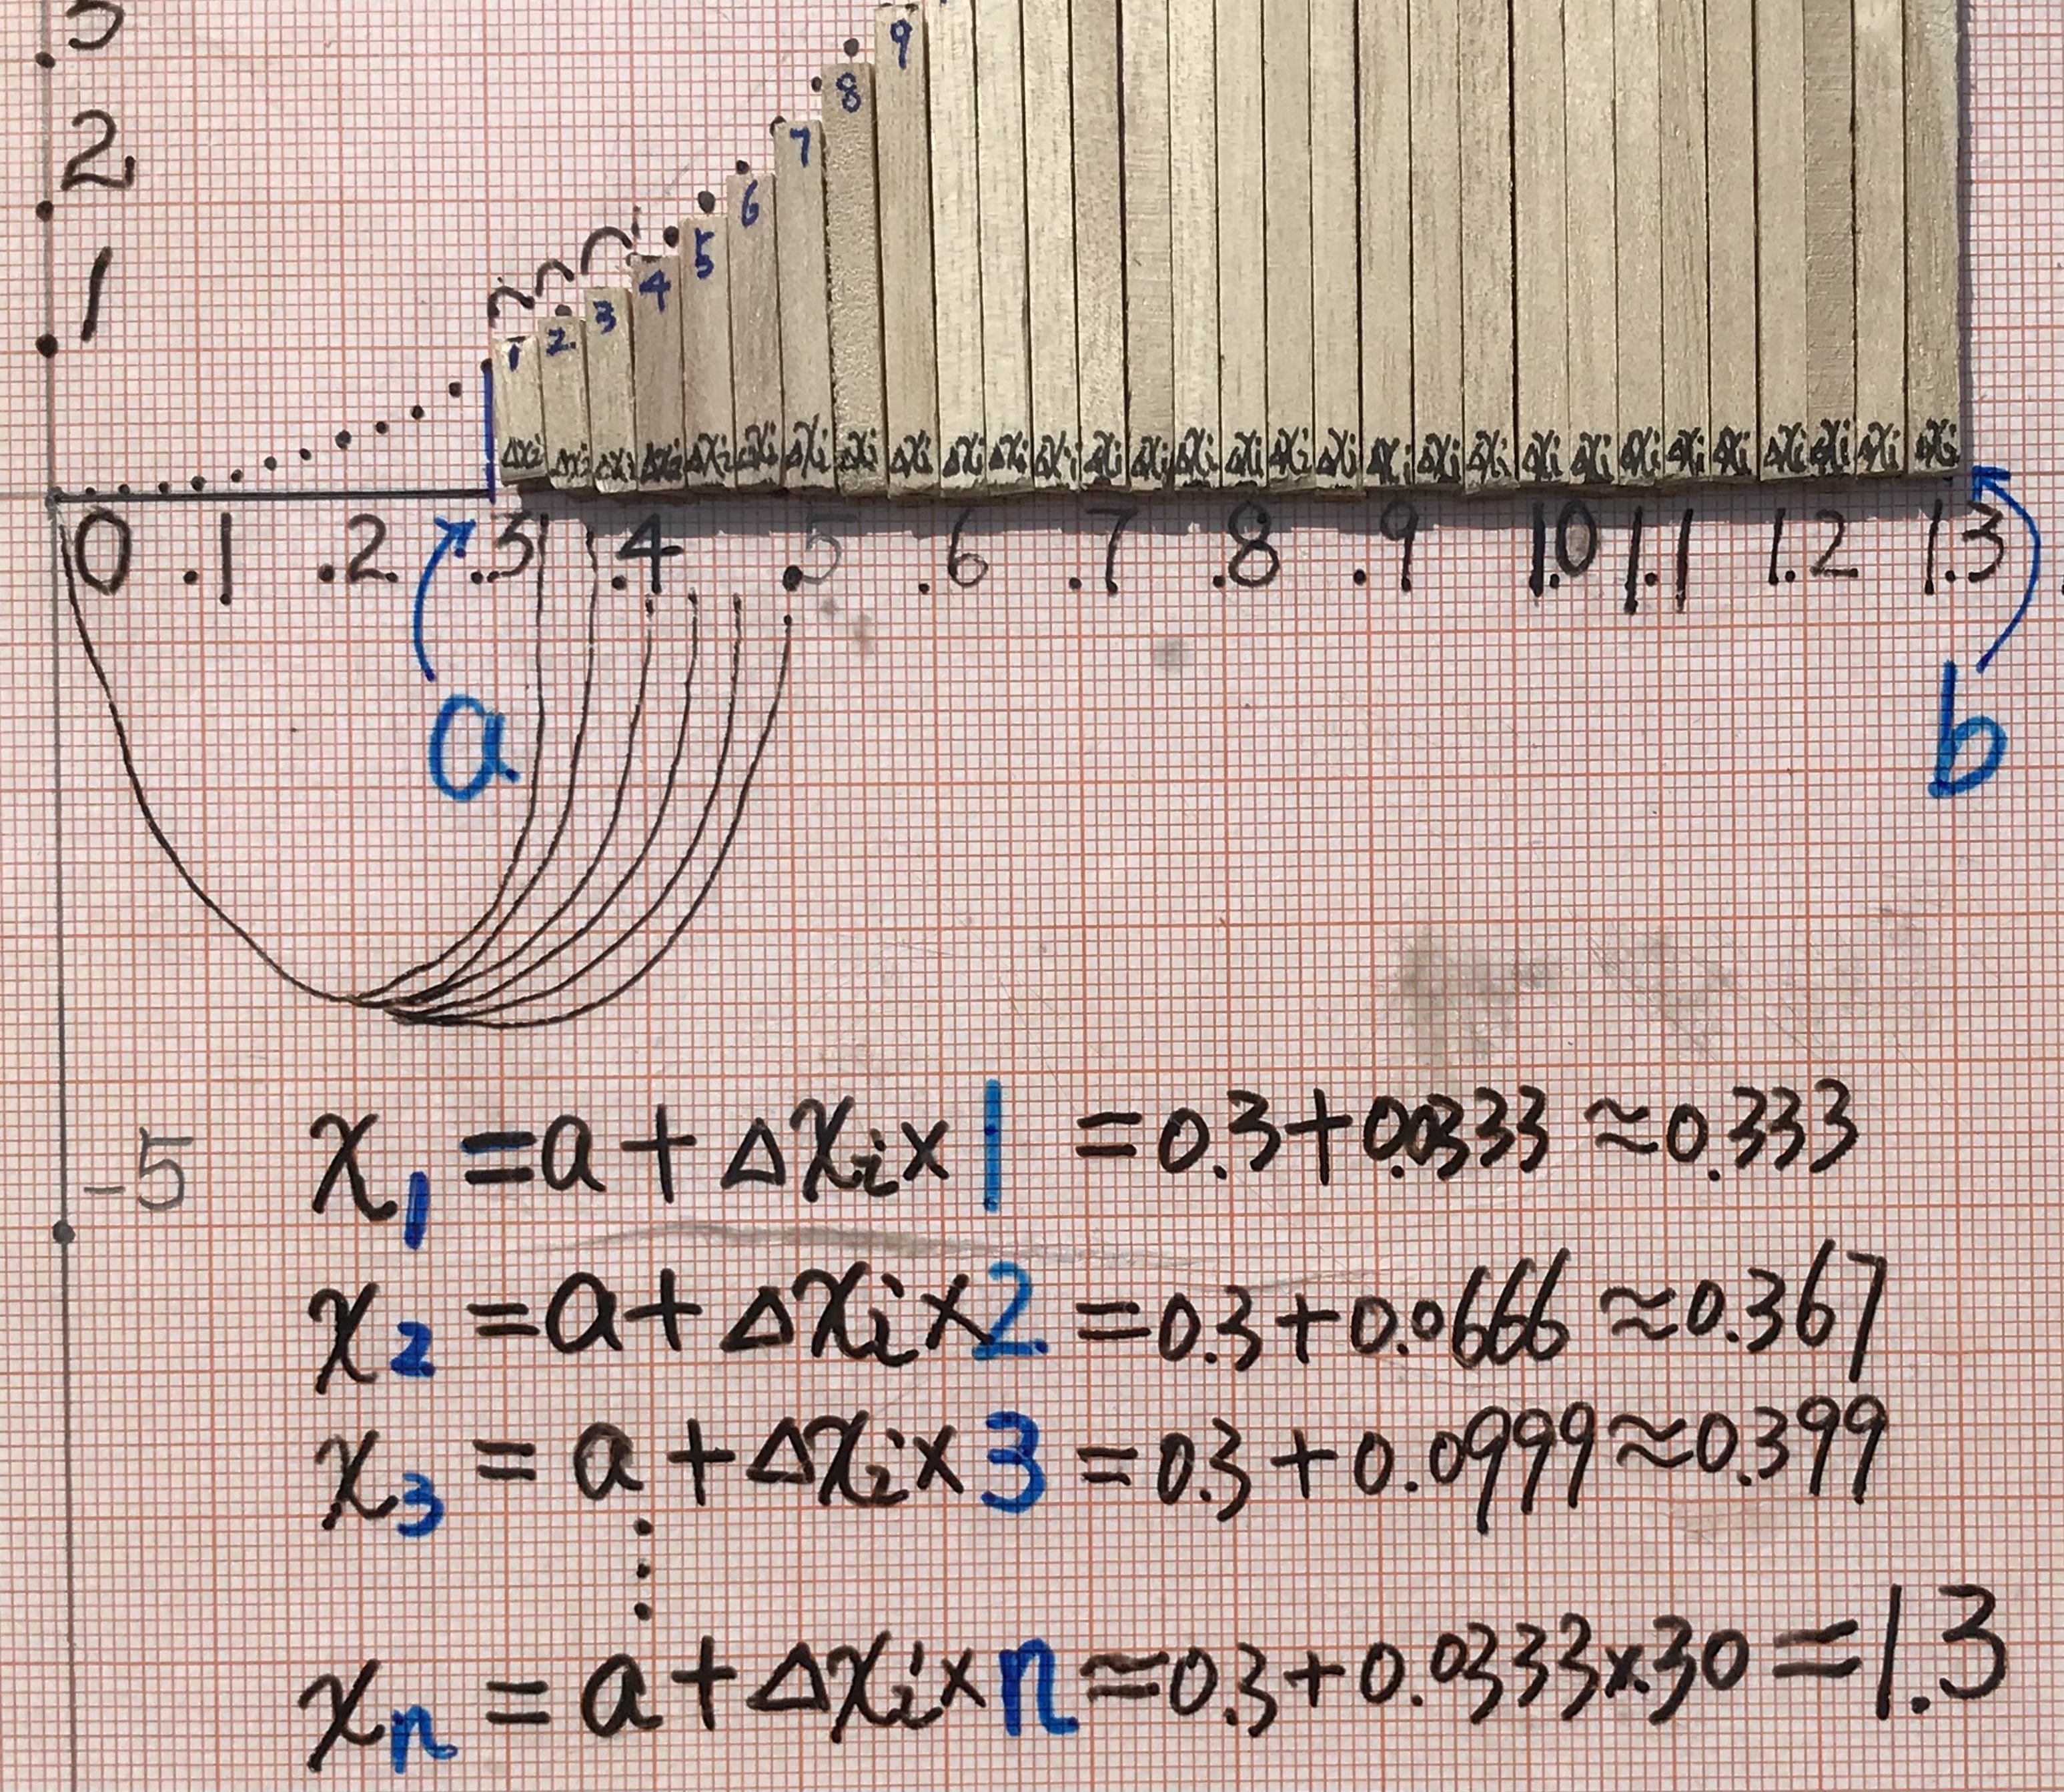 3
2
1
1 2 3 4 5 6 7 8 9
Δxi Δxi Δxi Δxi Δxi Δxi Δxi Δxi Δxi Δxi Δxi Δxi Δxi Δxi Δxi Δxi Δxi Δxi Δxi Δxi Δxi Δxi Δxi Δxi Δxi Δxi Δxi Δxi Δxi
0 .1 .2 .3 .4 .5 .6 .7 .8 .9 1.0 1.1 1.2 1.3
a b
-5
x1 = a + Δxi × 1 = 0.3 + 0.0333 ≈ 0.333
x2 = a + Δxi × 2 = 0.3 + 0.0666 ≈ 0.367
x3 = a + Δxi × 3 = 0.3 + 0.0999 ≈ 0.399
⋮
xn = a + Δxi × n = 0.3 + 0.0333 × 30 = 1.3